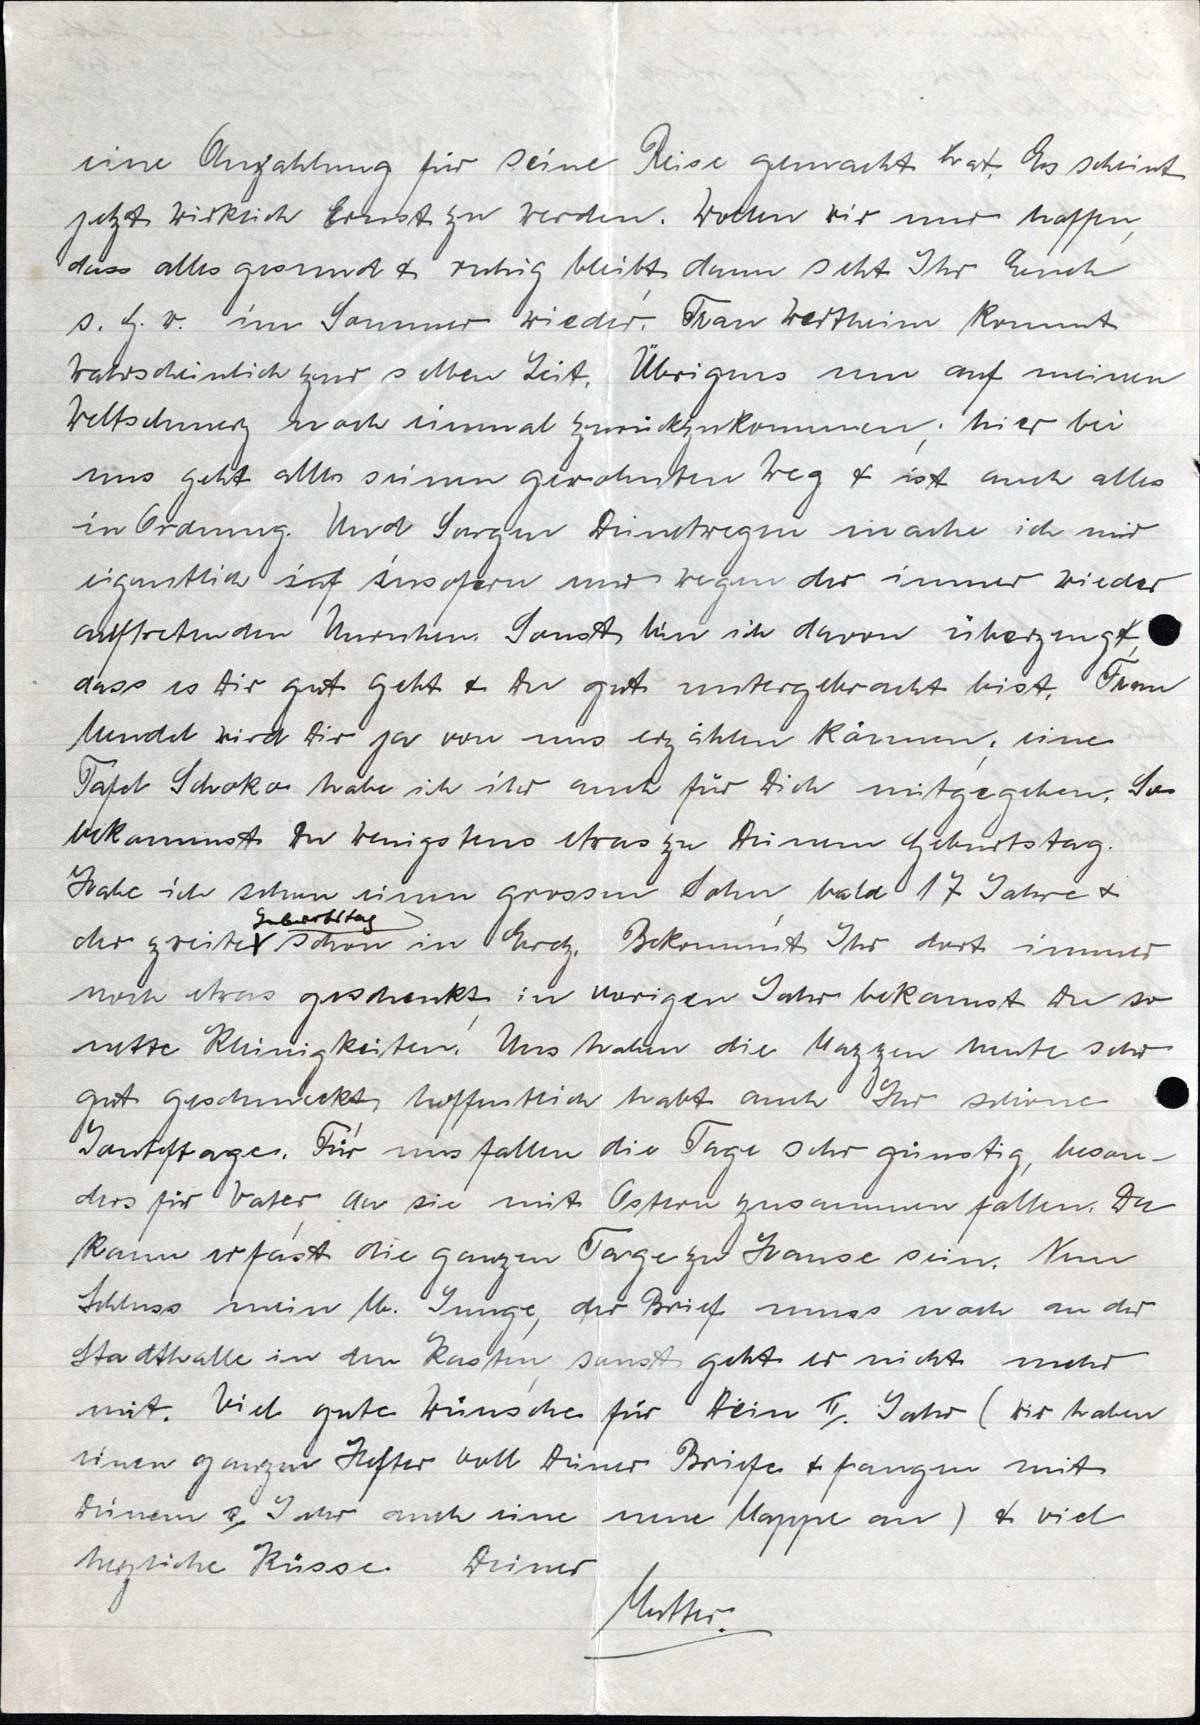 eine Anzahlung für seine Reise gemacht hat. Es scheint
jetzt wirklich Ernst zu werden. Wollen wir nur hoffen,
dass alles gesund & ruhig bleibt, dann seht Ihr Euch
s. G. w. im Sommer wieder. Frau Wertheim kommt
wahrscheinlich zur selben Zeit. Übrigens um auf meinen
Weltschmerz noch einmal zurückzukommen, hier bei
uns geht alles seinen gewohnten Weg & ist auch alles
in Ordnung. Und Sorgen Deinetwegen mache ich mir
eigentlich inf insofern nur wegen der immer wieder
auftretenden Unruhen. Sonst bin ich davon überzeugt,
dass es Dir gut geht & Du gut untergebracht bist. Frau
Mendel wird Dir ja von uns erzählen können, eine
Tafel Schoko habe ich ihr auch für Dich mitgegeben. So
bekommst Du wenigstens etwas zu Deinem Geburtstag.
Habe ich schon einen grossen Sohn, bald 17 Jahre &
Geburtstag
der zweite schon in Erez. Bekommt Ihr dort immer
noch etwas geschenkt, im vorigen Jahr bekamst Du so
nette Kleinigkeiten. Uns haben die Mazzen heute sehr
gut geschmeckt, hoffentlich habt auch Ihr schöne
Jonteftage. Für uns fallen die Tage sehr günstig, beson-
ders für Vater, da sie mit Ostern zusammen fallen. Da
kann er fast die ganzen Tage zu Hause sein. Nun
Schluss mein lb. Junge, der Brief muss noch an der
Stadthalle in den Kasten, sonst geht er nicht mehr
mit. Viel gute Wünsche für Dein II. Jahr (wir haben
einen ganzen Hefter voll Deiner Briefe & fangen mit
Deinem 2. Jahr auch eine neue Mappe an) & viel
herzliche Küsse. Deiner
Mutter.